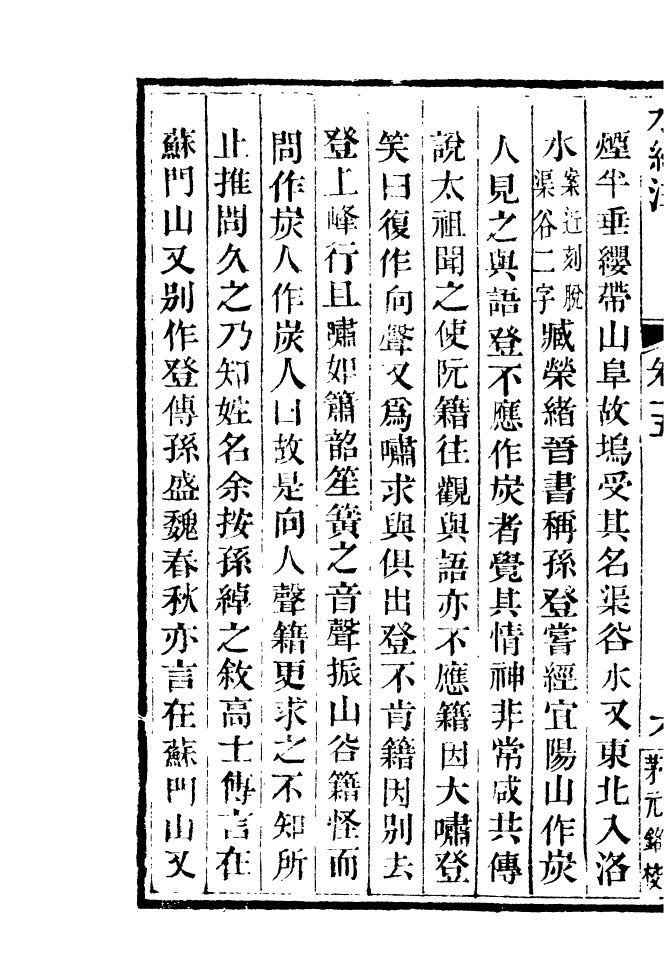 水經注 卷十五 茅元銘校
煙半垂纓帶山阜故塢受其名渠谷水又東北入洛
水案近刻脫渠谷二字臧榮緒晉書稱孫登嘗經宜陽山作炭
人見之與語登不應作炭者覺其情神非常咸共傳
說太祖聞之使阮籍往觀與語亦不應籍因大嘯登
笑曰復作向聲又爲嘯求與俱出登不肯籍因別去
登上峰行且嘯如簫韶笙簧之音聲振山谷籍怪而
問作炭人作炭人曰故是向人聲籍更求之不知所
止推問久之乃知姓名余按孫綽之敘高士傳言在
蘇門山又別作登傳孫盛魏春秋亦言在蘇門山又